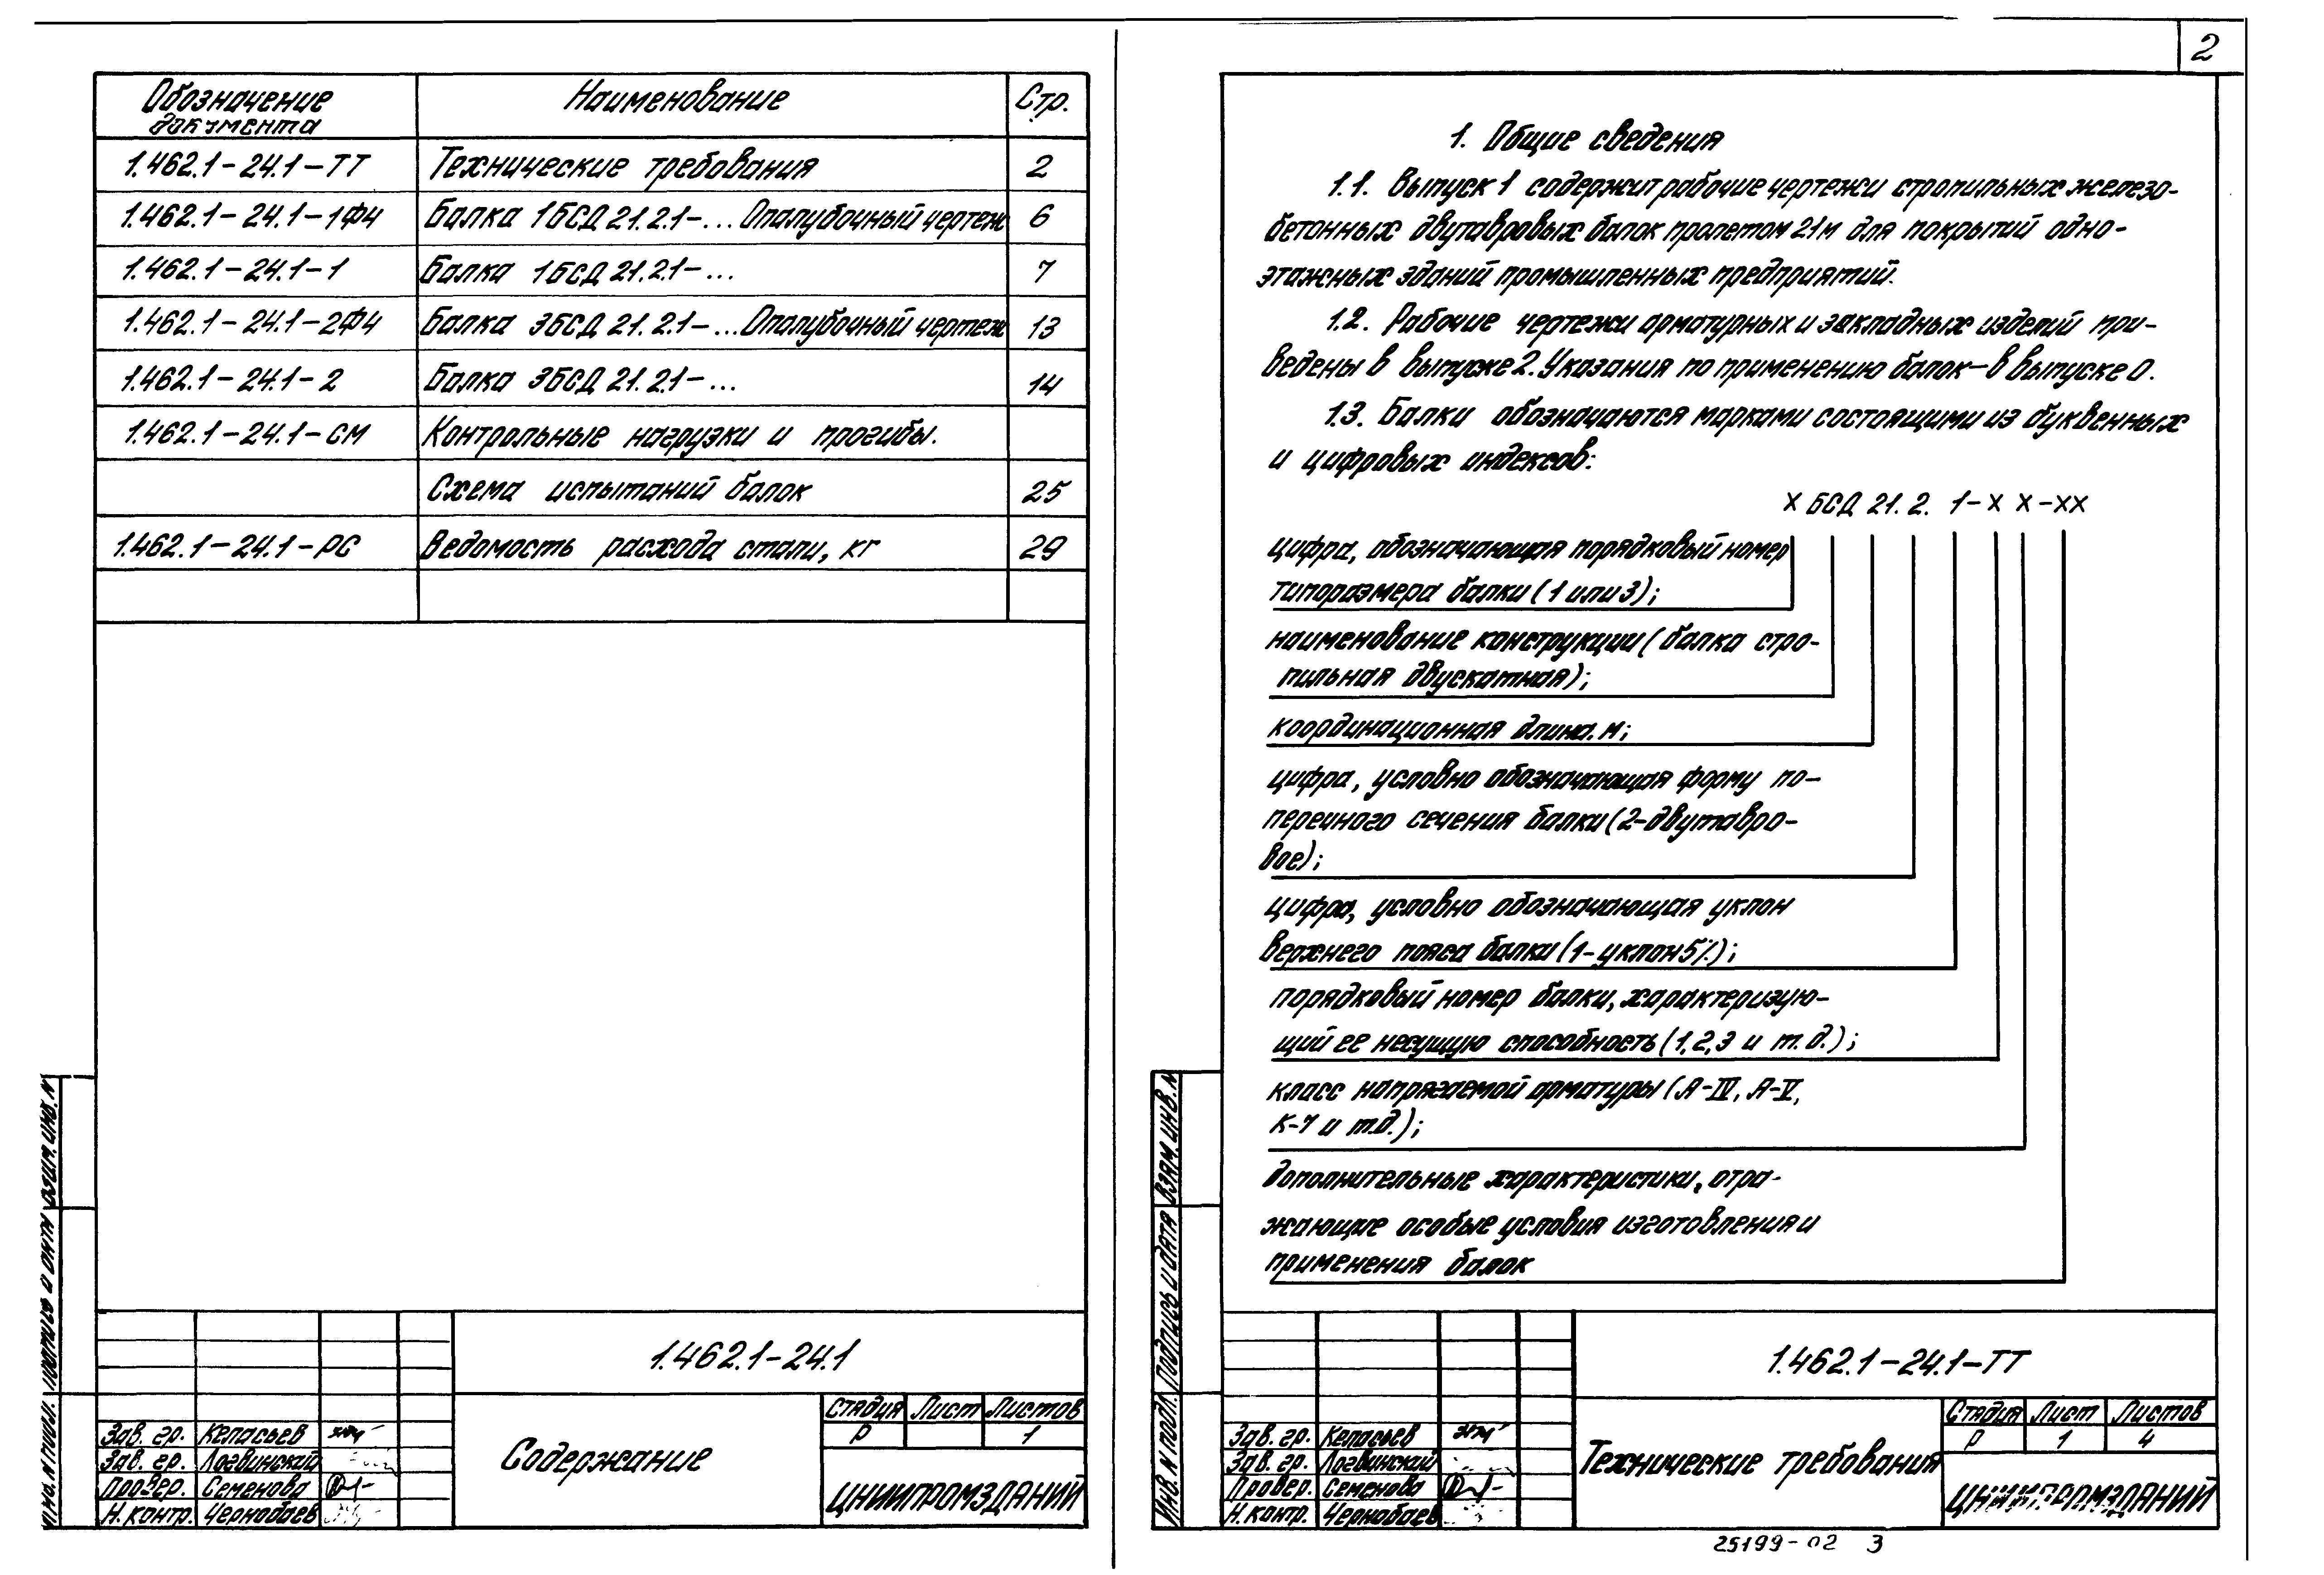 Обозначение документа Наименование Стр.
1.462.1-24.1-ТТ Технические требования 2
1.462.1-24.1-1ФЧ Балка 1БСД 21.2.1-... Опалубочный чертеж 6
1.462.1-24.1-1 Балка 1БСД 21.2.1-... 7
1.462.1-24.1-2ФЧ Балка 3БСД 21.2.1-... Опалубочный чертеж 13
1.462.1-24.1-2 Балка 3БСД 21.2.1-... 14
1.462.1-24.1-СМ Контрольные нагрузки и прогибы.
Схема испытаний балок 25
1.462.1-24.1-РС Ведомость расхода стали, кг 29
Взам. инв. N
Подпись и дата
Инв. N подл.
1.462.1-24.1
Стадия Лист Листов
Р 1
Зав. гр. Келасьев
Зав. гр. Логвинский
Провер. Семенова
Н. контр. Чернобаев
Содержание
ЦНИИПРОМЗДАНИЙ
2
1. Общие сведения
1.1. Выпуск 1 содержит рабочие чертежи стропильных железо-
бетонных двутавровых балок пролетом 21м для покрытий одно-
этажных зданий промышленных предприятий.
1.2. Рабочие чертежи арматурных и закладных изделий при-
ведены в выпуске 2. Указания по применению балок – в выпуске 0.
1.3. Балки обозначаются марками состоящими из буквенных
и цифровых индексов:
Х БСД 21. 2. 1-Х Х-ХХ
цифра, обозначающая порядковый номер
типоразмера балки (1 или 3);
наименование конструкции (балка стро-
пильная двускатная);
координационная длина. м;
цифра, условно обозначающая форму по-
перечного сечения балки (2-двутавро-
вое);
цифра, условно обозначающая уклон
верхнего пояса балки (1-уклон 5%);
порядковый номер балки, характеризую-
щий ее несущую способность (1,2,3 и т.д.);
класс напрягаемой арматуры (А-IV, А-V,
К-7 и т.д.);
дополнительные характеристики, отра-
жающие особые условия изготовления и
применения балок
Взам. инв. N
Подпись и дата
Инв. N подл.
1.462.1-24.1-ТТ
Стадия Лист Листов
Р 1 4
Зав. гр. Келасьев
Зав. гр. Логвинский
Провер. Семенова
Н. контр. Чернобаев
Технические требования
ЦНИИПРОМЗДАНИЙ
25199-02 3